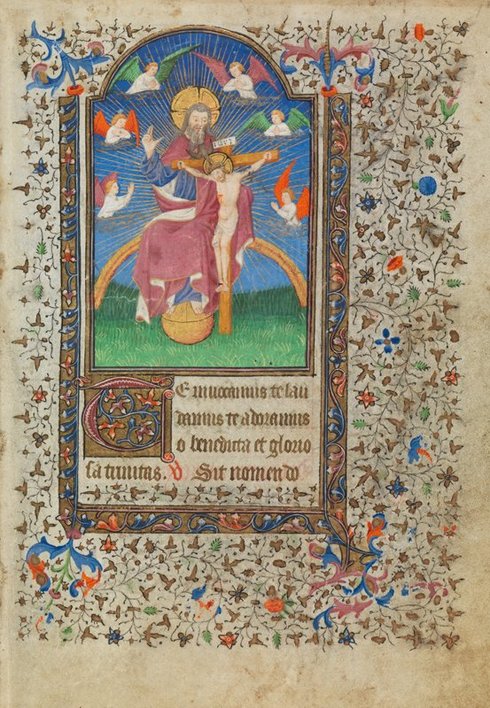 INRI
Te inuocamus te lau
damus te adoramus
o benedicta et glorio
sa trinitas. V Sit nomen do